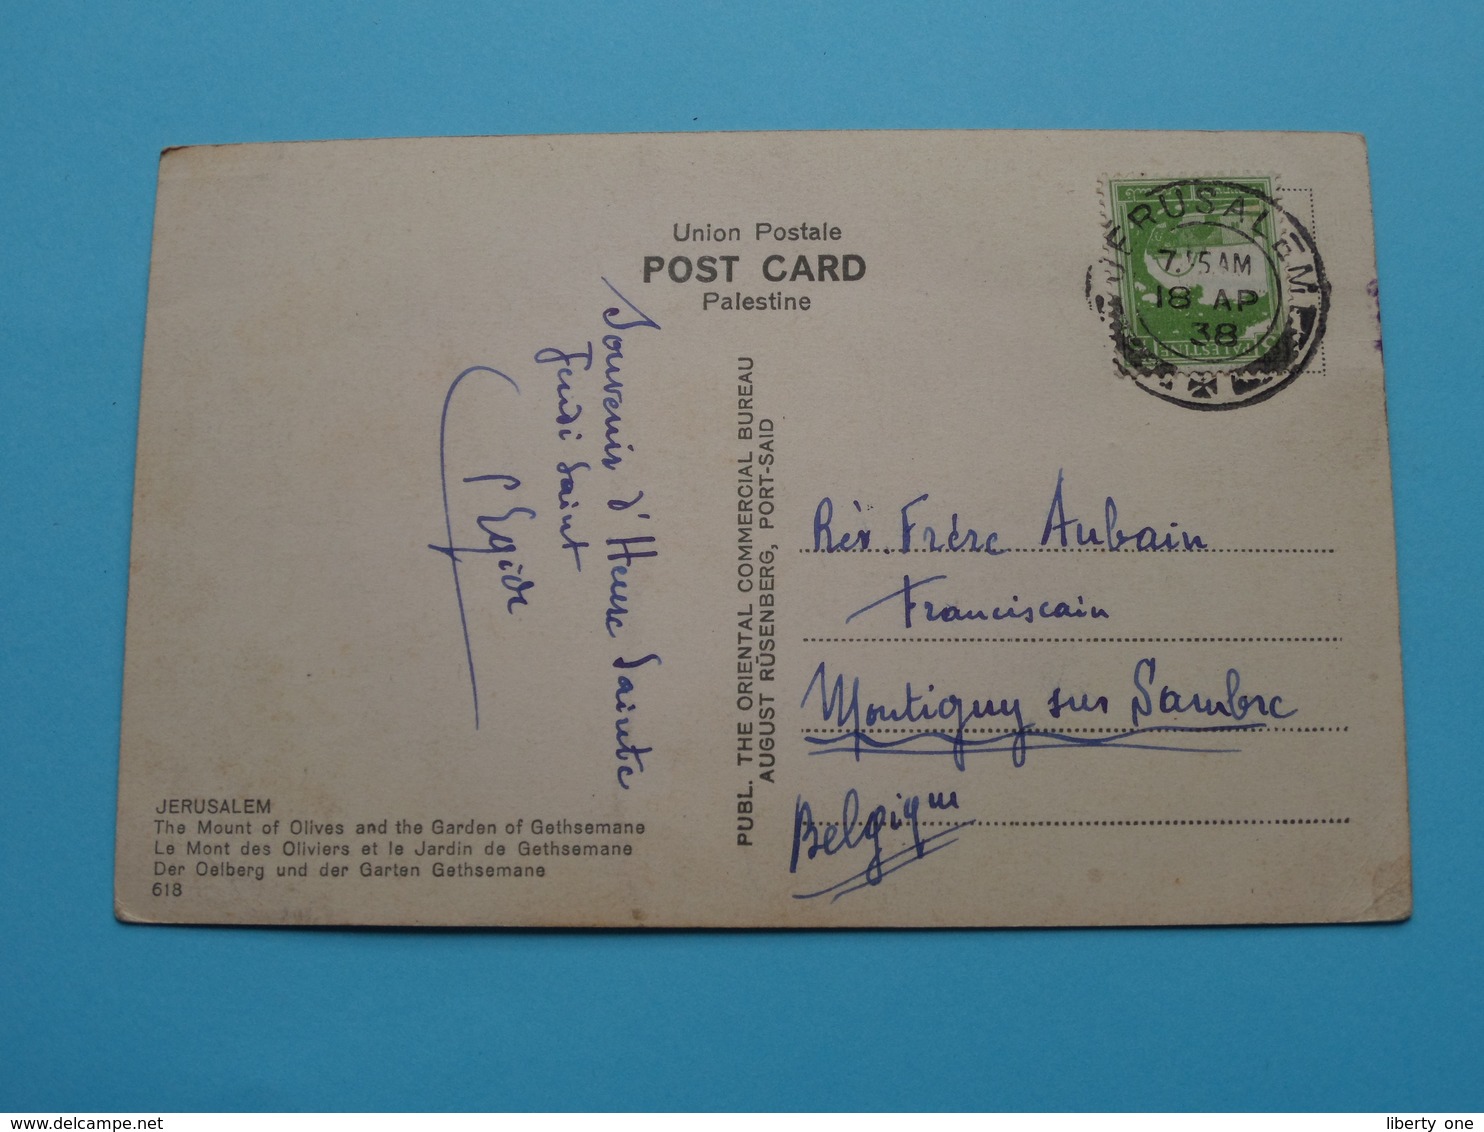 Union Postale
POST CARD
Palestine
JERUSALEM
7.15 AM
18 AP
38
PALESTINE
Souvenir d'Heure Sainte
Jeudi Saint
P Egide
PUBL. THE ORIENTAL COMMERCIAL BUREAU
AUGUST RÜSENBERG, PORT-SAID
Rév. Frère Aubain
Franciscain
Montigny sur Sambre
Belgique
JERUSALEM
The Mount of Olives and the Garden of Gethsemane
Le Mont des Oliviers et le Jardin de Gethsemane
Der Oelberg und der Garten Gethsemane
618
delcampe.net
liberty one